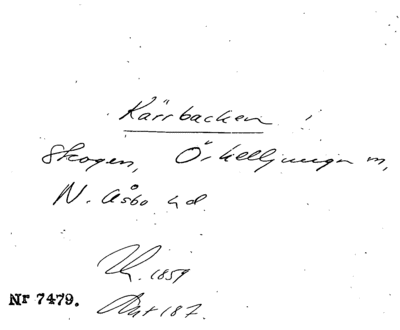 Kärrbacken i
Skogen, Örkelljunga m,
N. Åsbo hd.
1859
Nr 7479.
187.